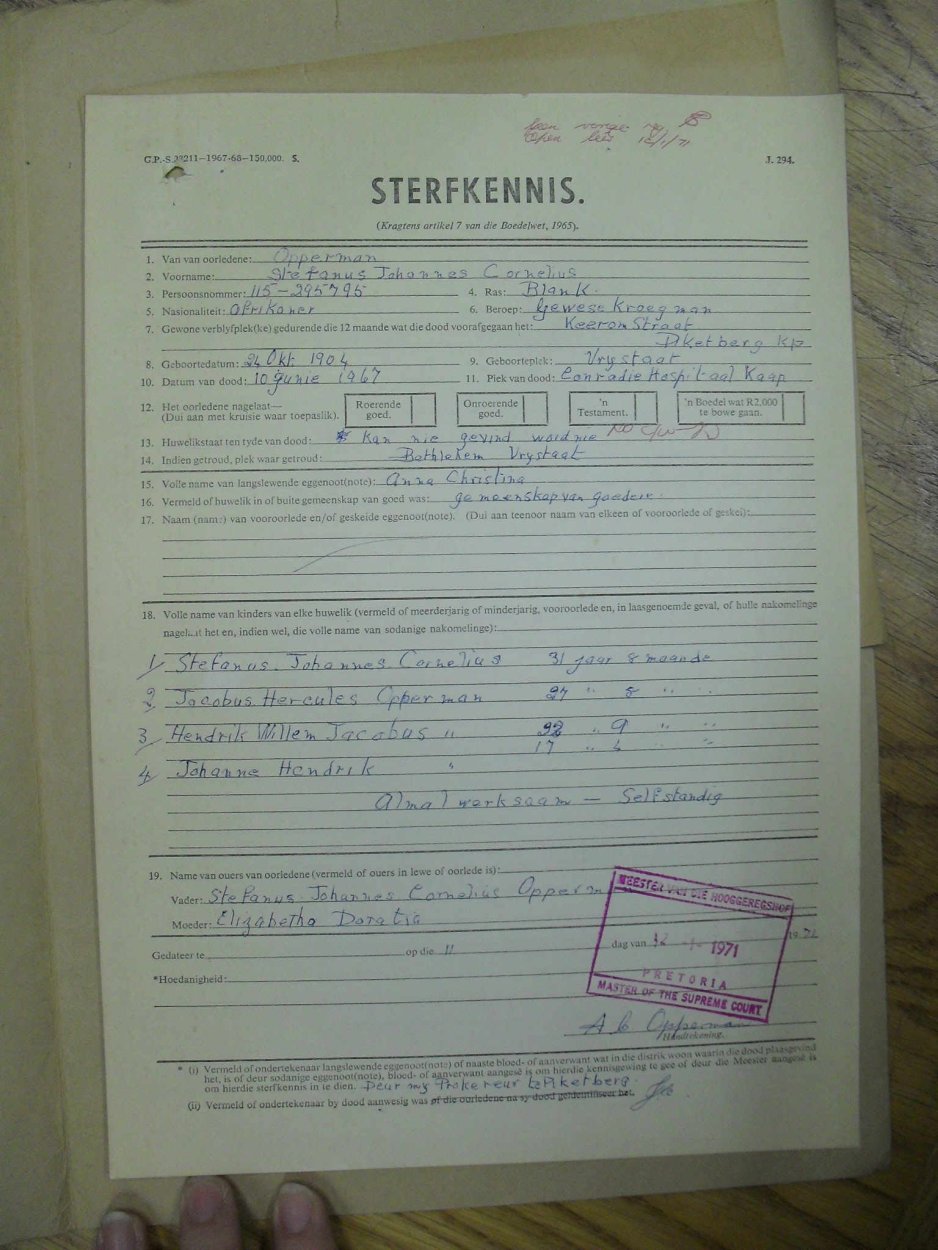 G.P.-S.22211—1967-68—150,000. S.
J. 294.
STERFKENNIS.
(Kragtens artikel 7 van die Boedelwet, 1965).
1. Van van oorledene: Opperman
2. Voorname: Stefanus Johannes Cornelius
3. Persoonsnommer: 115-295795 4. Ras: Blank.
5. Nasionaliteit: Afrikaner 6. Beroep: Gewese Kroegman
7. Gewone verblyfplek(ke) gedurende die 12 maande wat die dood voorafgegaan het: Keerom Straat
Piketberg KP
8. Geboortedatum: 24 Okt 1904 9. Geboorteplek: Vrystaat
10. Datum van dood: 10 Junie 1967 11. Plek van dood: Conradie Hospitaal Kaap
12. Het oorledene nagelaat— (Dui aan met kruisie waar toepaslik). Roerende goed. Onroerende goed. 'n Testament. 'n Boedel wat R2,000 te bowe gaan.
13. Huwelikstaat ten tyde van dood: Kan nie gevind word nie
14. Indien getroud, plek waar getroud: Bethlehem Vrystaat
15. Volle name van langslewende eggenoot(note): Anna Christina
16. Vermeld of huwelik in of buite gemeenskap van goed was: gemeenskap van goedere.
17. Naam (name) van vooroorlede en/of geskeide eggenoot(note). (Dui aan teenoor naam van elkeen of vooroorlede of geskei):
18. Volle name van kinders van elke huwelik (vermeld of meerderjarig of minderjarig, vooroorlede en, in laasgenoemde geval, of hulle nakomelinge
nagelaat het en, indien wel, die volle name van sodanige nakomelinge):
1 Stefanus Johannes Cornelius 31 jaar 8 maande
2 Jacobus Hercules Opperman 27 " 8 " "
3 Hendrik Willem Jacobus " 22 " 9 " "
17 " 4 " "
4 Johanne Hendrik "
Almal werksaam — Selfstandig
19. Name van ouers van oorledene (vermeld of ouers in lewe of oorlede is):
Vader: Stefanus Johannes Cornelius Opperm
Moeder: Elizabetha Doratia
MEESTER VAN DIE HOOGGEREGSHOF
Gedateer te op die 11 dag van 12 1971 1971
PRETORIA
*Hoedanigheid:
MASTER OF THE SUPREME COURT
A C Opperman
Handtekening.
* (i) Vermeld of ondertekenaar langslewende eggenoot(note) of naaste bloed- of aanverwant wat in die distrik woon waarin die dood plaasgevind
het, is of deur sodanige eggenoot(note), bloed- of aanverwant aangesê is om hierdie kennisgewing te gee of deur die Meester aangesê is
om hierdie sterfkennis in te dien. Deur my Prokereur te Piketberg.
(ii) Vermeld of ondertekenaar by dood aanwesig was of die oorledene na sy dood geïdentifiseer het.